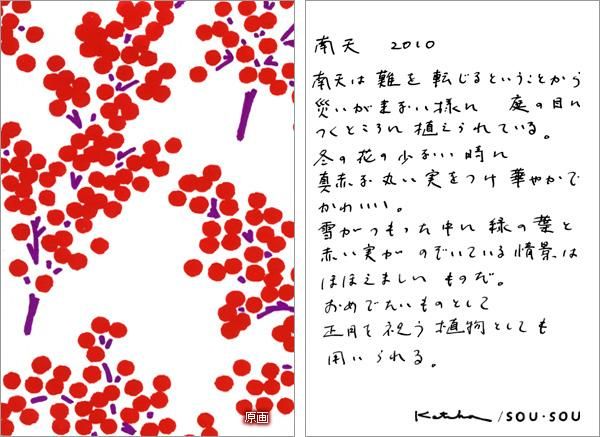 原画
南天 2010
南天は難を転じるということから
災いがまない様に 庭の目に
つくところに植えられている。
冬の花の少ない時に
真赤な丸い実をつけ華やかで
かわいい。
雪がつもった中に緑の葉と
赤い実がのぞいている情景は
ほほえましいものだ。
おめでたいものとして
正月を祝う植物としても
用いられる。
Katsuji /SOU・SOU